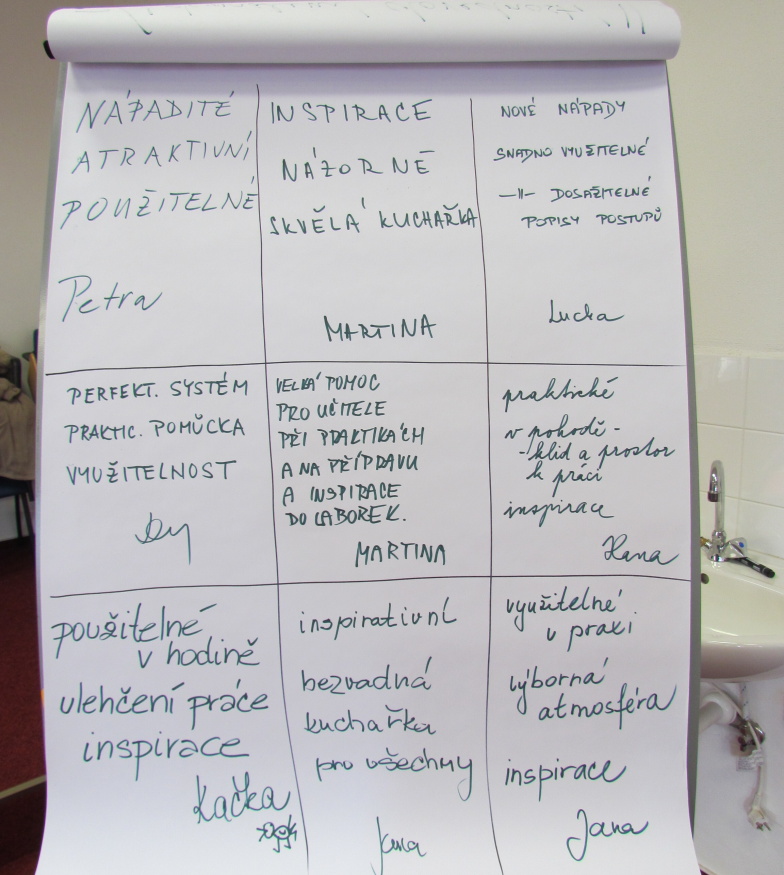 NÁPADITÉ
ATRAKTIVNÍ
POUŽITELNÉ
Petra
INSPIRACE
NÁZORNÉ
SKVĚLÁ KUCHAŘKA
MARTINA
NOVÉ NÁPADY
SNADNO VYUŽITELNÉ
—||— DOSAŽITELNÉ
POPISY POSTUPŮ
Lucka
PERFEKT. SYSTÉM
PRAKTIC. POMŮCKA
VYUŽITELNOST
VELKÁ POMOC
PRO UČITELE
PŘI PRAKTIKÁCH
A NA PŘÍPRAVU
A INSPIRACE
DO LABOREK.
MARTINA
praktické
v pohodě -
- klid a prostor
k práci
inspirace
Hana
použitelné
v hodině
ulehčení práce
inspirace
Kačka
inspirativní
bezvadná
kuchařka
pro všechny
Jana
využitelné
v praxi
výborná
atmosféra
inspirace
Jana